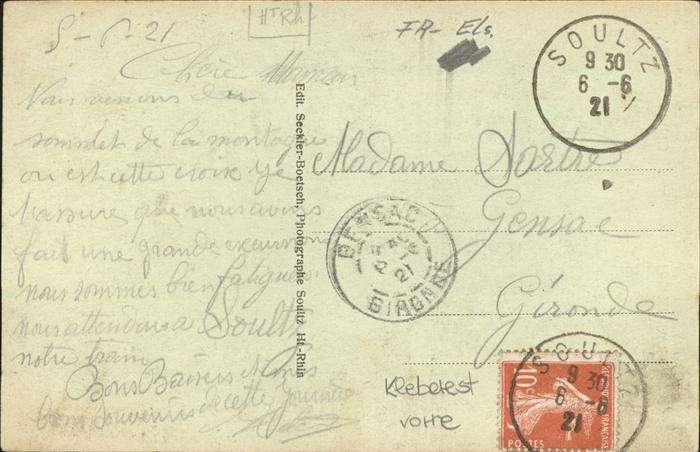 5-6-21
HT Rh
FR- Els.
Chère Maman
Nous venons du
sommet de la montagne
ou est cette croix je
t'assure que nous avons
fait une grande excursion
nous sommes bien fatigués
nous attendons a Soultz
notre train
Bons Baisers
bons souvenirs de cette journée
Edit. Seckler-Boetsch, Photographe Soultz Ht-Rhin
SOULTZ
9 30
6 -6
21
Madame Sartre
Gensac
Gironde
GENSAC
GIRONDE
SOULTZ
9 30
6 -6
21
10
POSTES